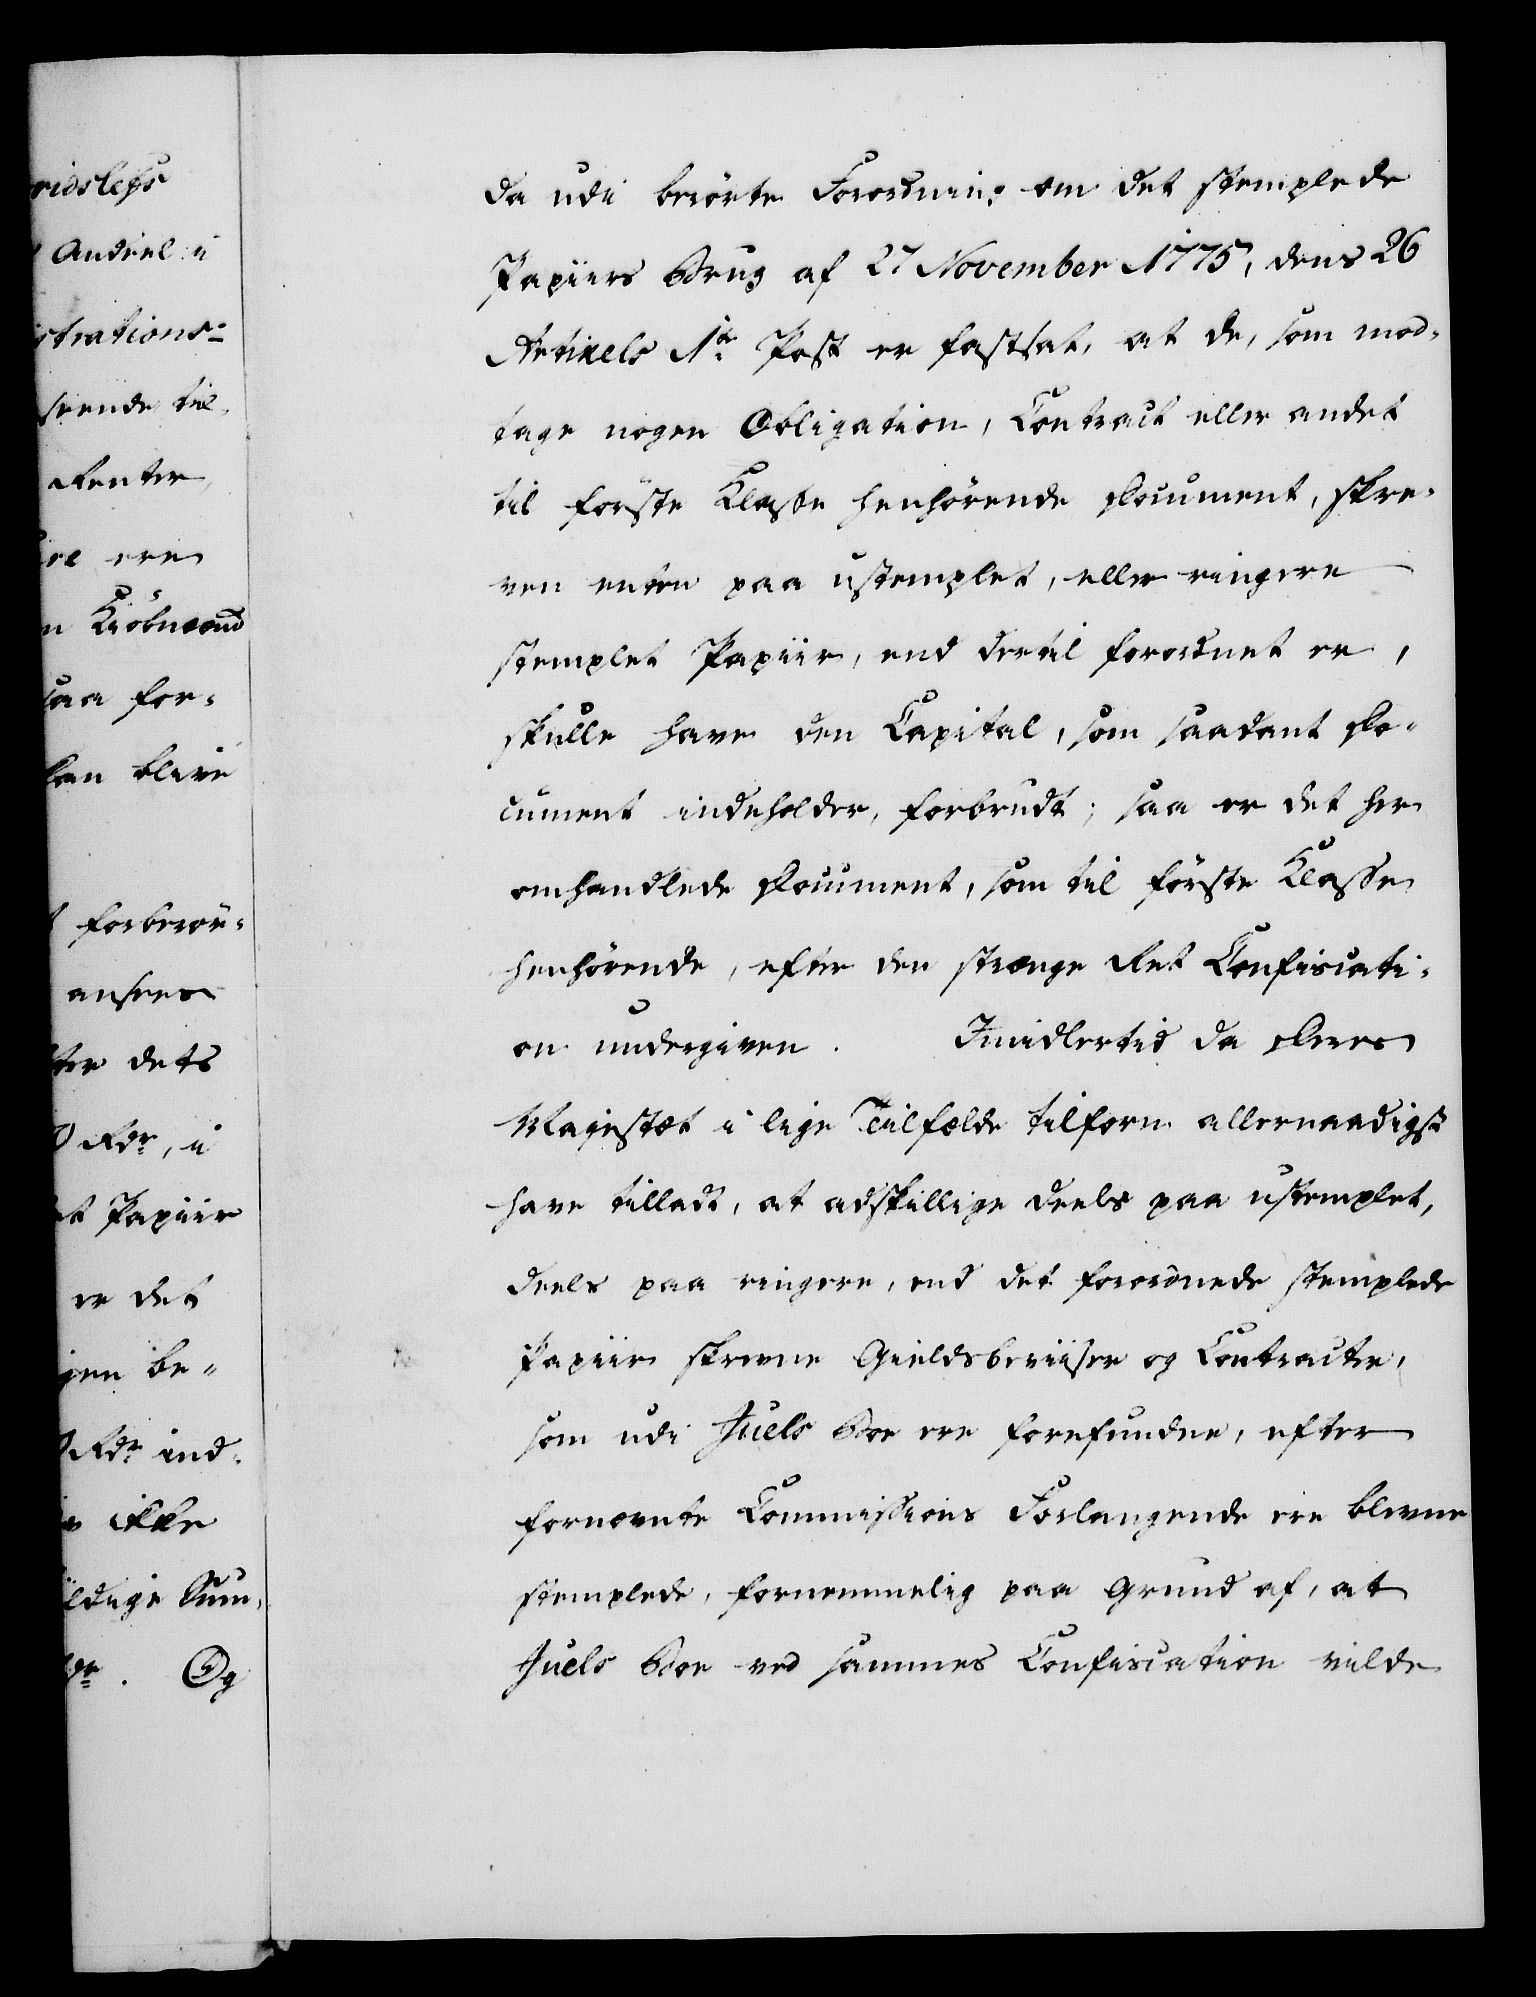 ridslefs
Andeel i
strations-
seende til-
Renter,
ere
n Kiöbmænd
saa for-
kan blive
forberör-
ansees
dets
Rdr, i
et Papiir
er det
gen be-
Rdr ind-
ikke
ldige Sum,
dr. Og
da udi berörte Forordning om det stemplede
Papiirs Brug af 27 November 1775, dens 26
Artikels 1te Post er fastsat, at de, som mod-
tage nogen Obligation, Contract eller andet
til förste Klasse henhörende Document, skre-
ven enten paa ustemplet, eller ringere
stemplet Papiir, end dertil forordnet er,
skulle have den Capital, som saadant Do-
cument indeholder, forbrudt; saa er det her
omhandlede Document, som til förste Klasse
henhörende, efter den strænge Ret Confiscati-
on undergiven. Imidlertid da Deres
Majestæt i lige Tilfælde tilforn allernaadigst
have tilladt, at adskillige deels paa ustemplet,
deels paa ringere, end det forordnede stemplede
Papiir skrevne Gieldsbeviiser og Contracter,
som udi Juels Boe ere forefundne, efter
fornævnte Commissions Forlangende ere blevne
stemplede, fornemmelig paa Grund af, at
Juels Boe ved sammes Confiscation vilde